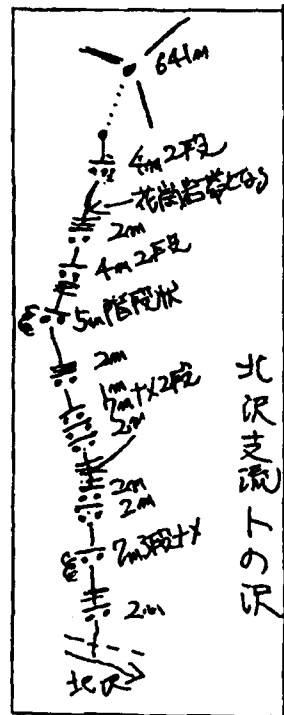 641m
4m2段
花崗岩帯となる
2m
4m2段
5m階段状
2m
1m
7mナメ2段
2m
2m
2m
7m3段ナメ
2m
北沢
北沢支流トの沢